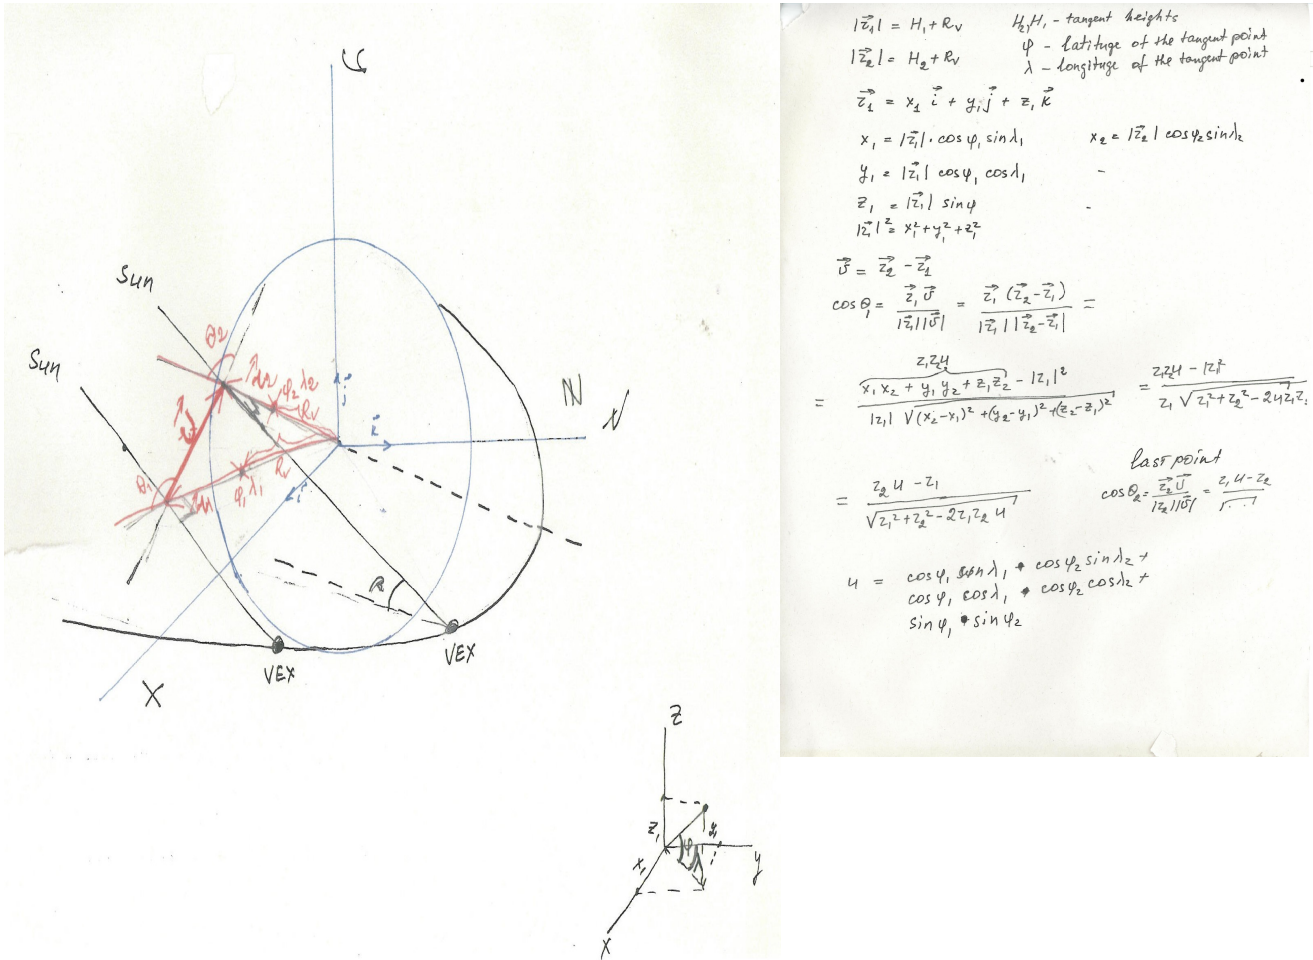 Sun
Sun
θ2
φ2 λ2
Rv
θ1
Rv
φ1 λ1
k
N
R
VEX
VEX
X
Z
z1
y1
φ
λ
x1
y
X
|r⃗1| = H1 + Rv H2, H1 - tangent heights
|r⃗2| = H2 + Rv φ - latituge of the tangent point
λ - longituge of the tangent point
r⃗1 = x1 i⃗ + y1 j⃗ + z1 k⃗
x1 = |r⃗1| · cosφ1 sinλ1 x2 = |r⃗2| cosφ2 sinλ2
y1 = |r⃗1| cosφ1 cosλ1 -
z1 = |r⃗1| sinφ -
|r⃗1|² = x1² + y1² + z1²
v⃗ = r⃗2 - r⃗1
cosθ1 = r⃗1 v⃗ / |r⃗1||v⃗| = r⃗1 (r⃗2 - r⃗1) / |r⃗1||r⃗2 - r⃗1| =
r1r2u
= x1x2 + y1y2 + z1z2 - |r1|² / |r1| √(x2-x1)² + (y2-y1)² + (z2-z1)² = r1r2u - |r1|² / r1 √r1² + r2² - 2ur1r2
last point
= r2u - r1 / √r1² + r2² - 2r1r2u cosθ2 = r⃗2 v⃗ / |r⃗2||v⃗| = r1u - r2 / √...
u = cosφ1 sinλ1 · cosφ2 sinλ2 +
cosφ1 cosλ1 · cosφ2 cosλ2 +
sinφ1 · sinφ2